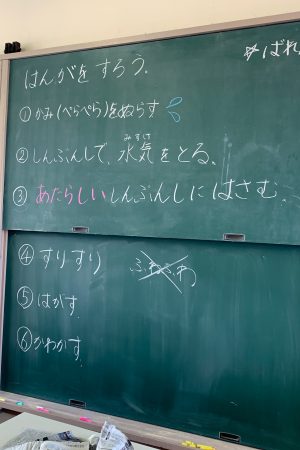 はんがをすろう。
☆ばれ
①かみ(ぺらぺら)をぬらす
②しんぶんしで、水気をとる。
みずけ
③あたらしいしんぶんしにはさむ。
④すりすり
ふわふわ
⑤はがす。
⑥かわかす。